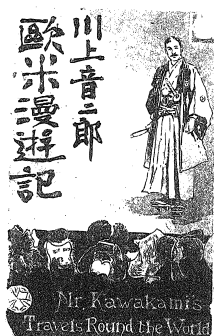 川上音二郎
歐米漫遊記
Mr Kawakamis
Travels Round the World